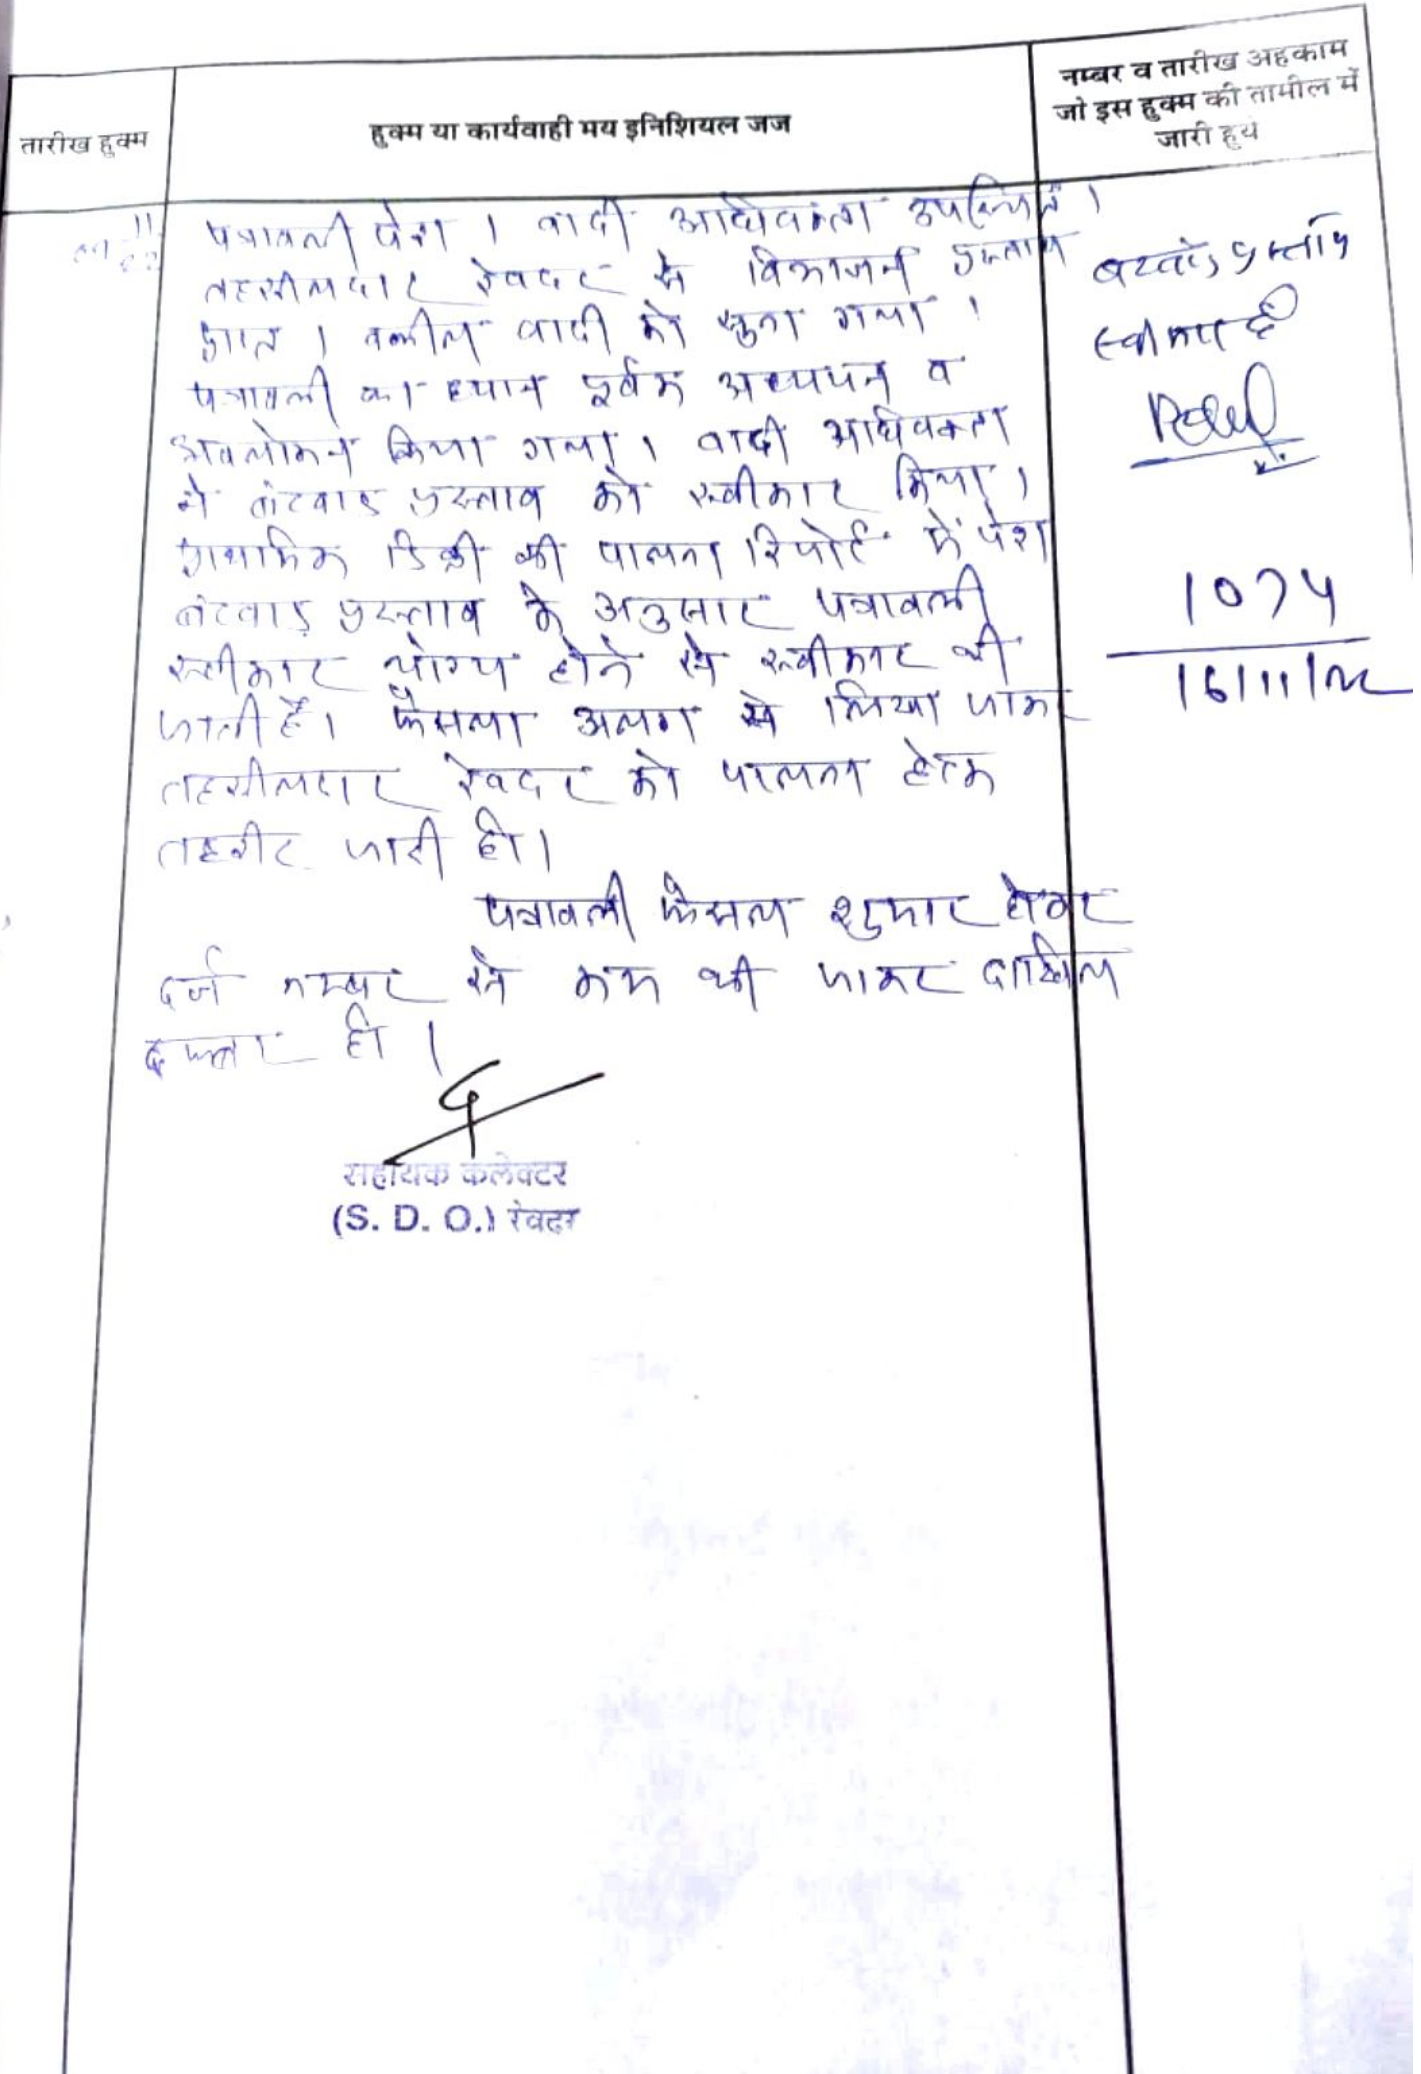 तारीख हुक्म
हुक्म या कार्यवाही मय इनिशियल जज
नम्बर व तारीख अहकाम
जो इस हुक्म की तामील में
जारी हुये
11
पत्रावली पेश । वादी अधिवक्ता उपस्थित ।
तहसीलदार रेवदर से विभाजन प्रस्ताव
प्राप्त । वकील वादी को सुना गया ।
पत्रावली का ध्यान पूर्वक अध्ययन व
अवलोकन किया गया । वादी अधिवक्ता
ने बंटवाड प्रस्ताव को स्वीकार किया ।
प्राथमिक डिक्री की पालना रिपोर्ट में पेश
बंटवाड प्रस्ताव के अनुसार पत्रावली
स्वीकार योग्य होने से स्वीकार की
जाती हैं । फैसला अलग से लिखा जाकर
तहसीलदार रेवदर को पालना हेतु
तहरीर जारी हो ।
पत्रावली फैसल शुमार होकर
दर्ज नम्बर से कम की जाकर दाखिल
दफ्तर हो ।
सहायक कलेक्टर
(S. D. O.) रेवदर
प्रस्ताव
स्वीकार है
1074
16/11/22